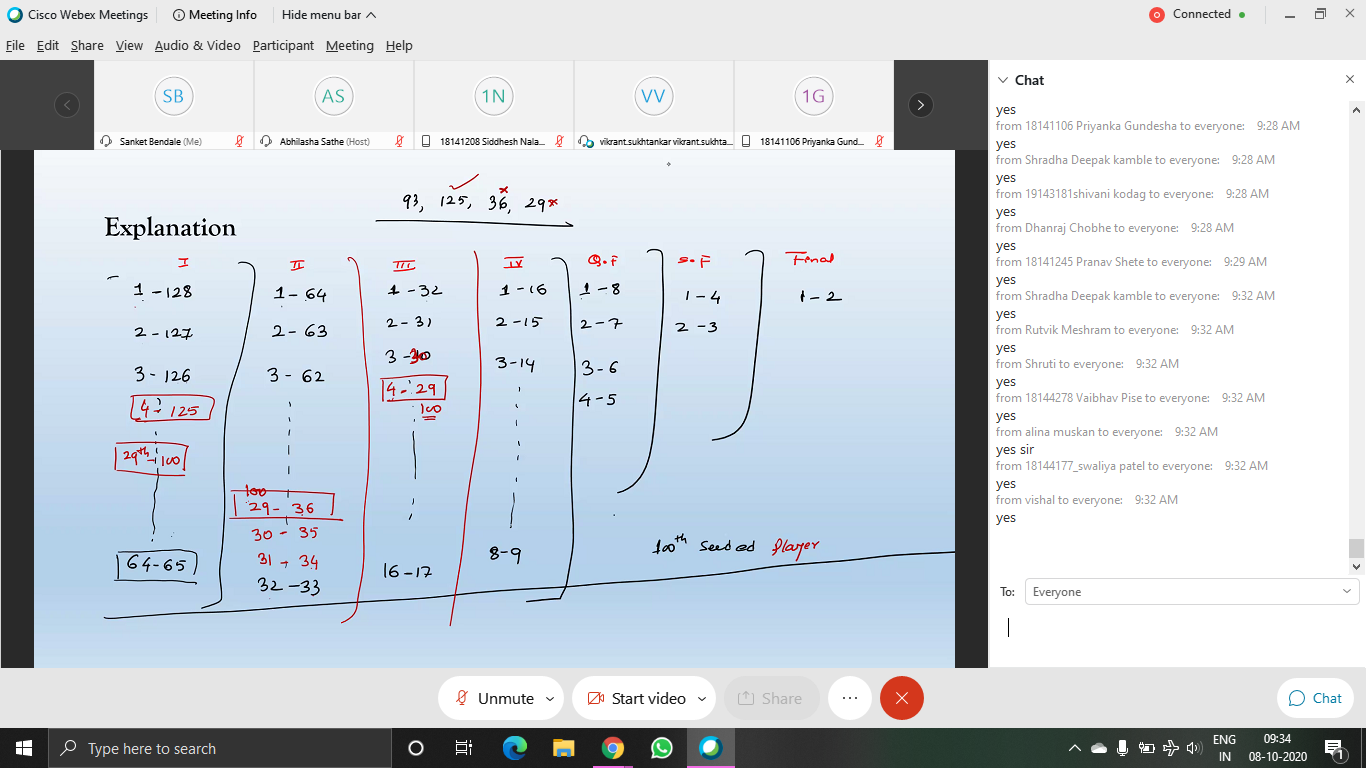 Cisco Webex Meetings
Meeting Info
Hide menu bar
Connected
File Edit Share View Audio & Video Participant Meeting Help
SB
AS
1N
VV
1G
Sanket Bendale (Me)
Abhilasha Sathe (Host)
18141208 Siddhesh Nala...
vikrant.sukhtankar vikrant.sukhta...
18141106 Priyanka Gund...
93, 125, 36, 29
Explanation
I II III IV Q.F S.F Final
1-128 1-64 1-32 1-16 1-8 1-4 1-2
2-127 2-63 2-31 2-15 2-7 2-3
3-126 3-62 3-30 3-14 3-6
4-125 4-29 4-5
100
29th-100
100
29-36
30-35
31-34
64-65 32-33 16-17 8-9
100th Seeded Player
Chat
yes
from 18141106 Priyanka Gundesha to everyone: 9:28 AM
yes
from Shradha Deepak kamble to everyone: 9:28 AM
yes
from 19143181shivani kodag to everyone: 9:28 AM
yes
from Dhanraj Chobhe to everyone: 9:28 AM
yes
from 18141245 Pranav Shete to everyone: 9:29 AM
yes
from Shradha Deepak kamble to everyone: 9:32 AM
yes
from Rutvik Meshram to everyone: 9:32 AM
yes
from Shruti to everyone: 9:32 AM
yes
from 18144278 Vaibhav Pise to everyone: 9:32 AM
yes
from alina muskan to everyone: 9:32 AM
yes sir
from 18144177_swaliya patel to everyone: 9:32 AM
yes
from vishal to everyone: 9:32 AM
yes
To: Everyone
Unmute
Start video
Share
Chat
Type here to search
ENG
IN
09:34
08-10-2020
1